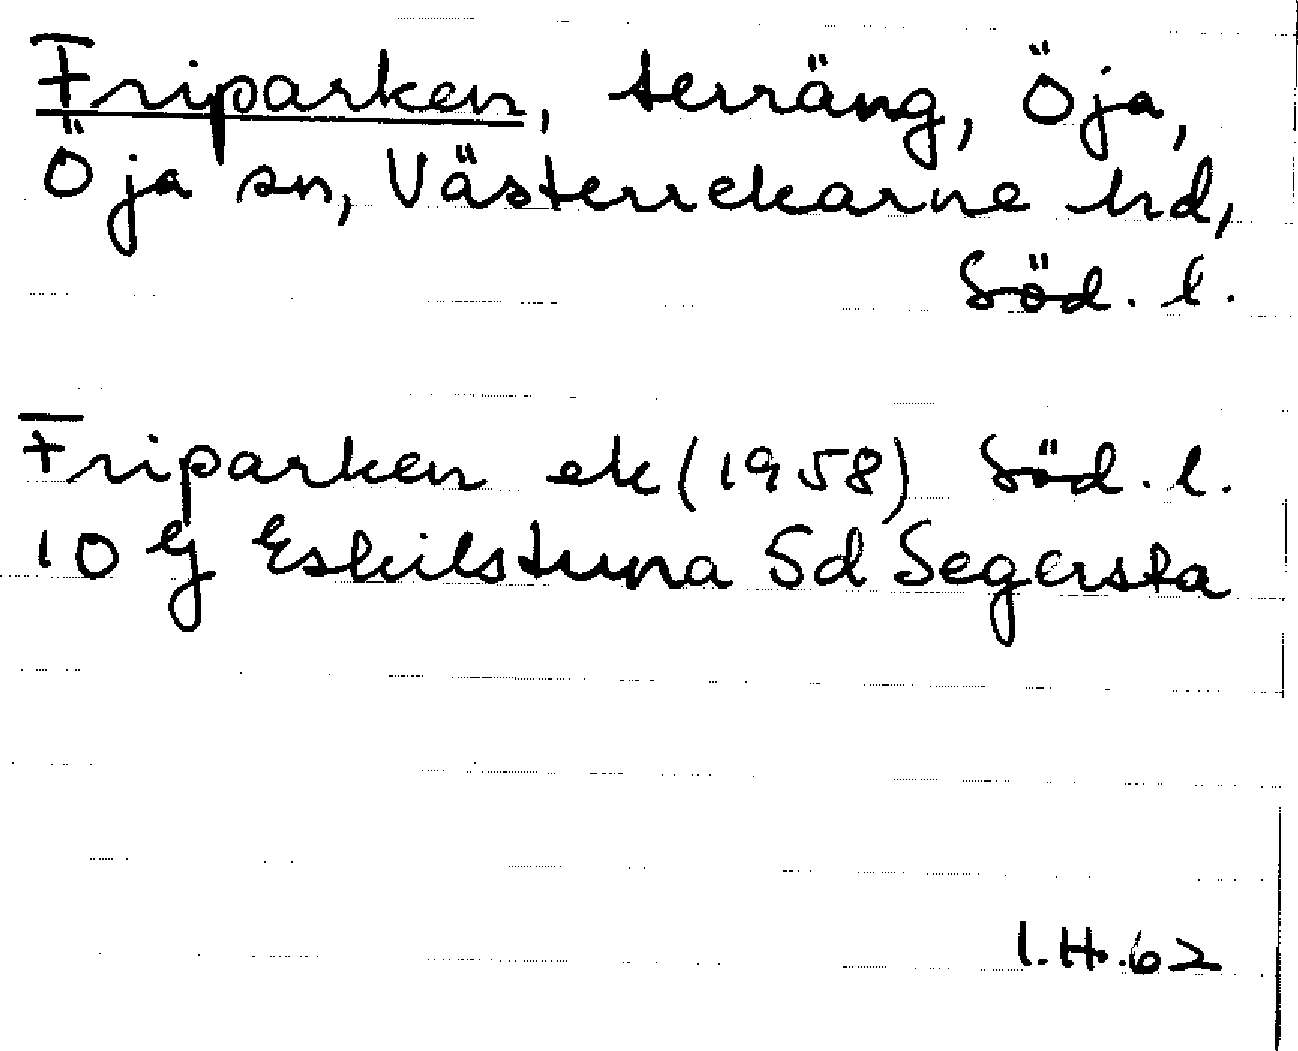 Friparken, terräng, Öja,
Öja sn, Västerrekarne hd,
Söd. l.
Friparken ek (1958) Söd. l.
10 G Eskilstuna Sd Segersta
I.H.62